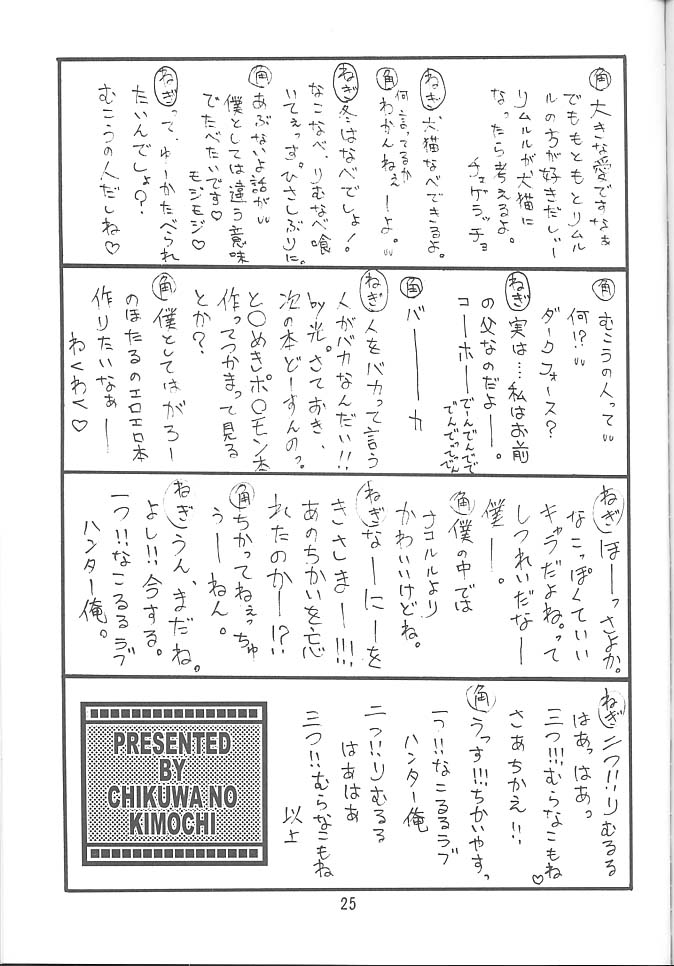 角 大きな愛ですなぁ
でももともとリムル
ルの方が好きだしぃー
リムルルが犬猫に
なったら考えるよ。
チェゲラッチョ
ねぎ 犬猫なべできるよ。
角 何言ってるか
わかんねぇーよ。
ねぎ 冬はなべでしょ!
なこなべ、りむなべ喰
いてぇっす。ひさしぶりに。
角 あぶないよ話が
僕としては違う意味
でたべたいです♡
モジモジ♡
ねぎ って、ゆーかたべられ
たいんでしょ?
むこうの人だしね♡
角 むこうの人って
何!?
ダークフォース?
ねぎ 実は…私はお前
の父なのだよー。
コーホー
でーんでんでんで
でんでっでん
角 バーーーカ
ねぎ 人をバカって言う
人がバカなんだい!!
by光。さておき、
次の本どーすんの?
と〇めきポ〇モン本
作ってつかまって見る
とか?
角 僕としてはがろー
のほたるのエロエロ本
作りたいなぁー
わくわく♡
ねぎ ほーっさよか。
なこっぽくていい
キャラだよね。って
しつれいだなー
僕ー。
角 僕の中では
ナコルルより
かわいいけどね。
ねぎ なーにーを
きさしまー!!!
あのちかいを忘
れたのかー!?
角 ちかってねぇっちゅ
うーねん。
ねぎ うん、まだね。
よし!!今する。
一つ!!なこるるラブ
ハンター俺。
ねぎ 二つ!!りむるる
はあっはぁっ
三つ!!!むらなこもね♡
さあちかえ!!
角 うっす!!!ちかいやすっ
一つ!!なこるるラブ
ハンター俺
二つ!!りむるる
はあはあ
三つ!!むらなこもね
以上
PRESENTED
BY
CHIKUWA NO
KIMOCHI
25